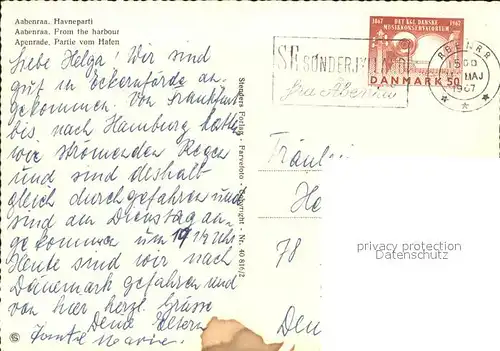 Aabenraa. Havneparti
Aabenraa. From the harbour
Apenrade, Partie vom Hafen
Liebe Helga! Wir sind
gut in Eckernförde an-
gekommen. Von Frankfurt
bis nach Hamburg hatten
wir strömenden Regen
und sind deshalb
gleich durchgefahren und
sind am Dienstag an-
gekommen um 19 Uhr
Heute sind wir nach
Dänemark gefahren und
von hier herzl. Grüsse
Deine Eltern
Tante
Stenders Forlag - Farvefoto - Copyright - Nr. 40 816/2
SE SØNDERJYLLAND
fra Åbenrå
1867 DET KGL. DANSKE 1967
MUSIKKONSERVATORIUM
DANMARK 50
ÅBENRÅ
1500
MAJ
1967
Fräulein
He
78
Dä
privacy protection
Datenschutz